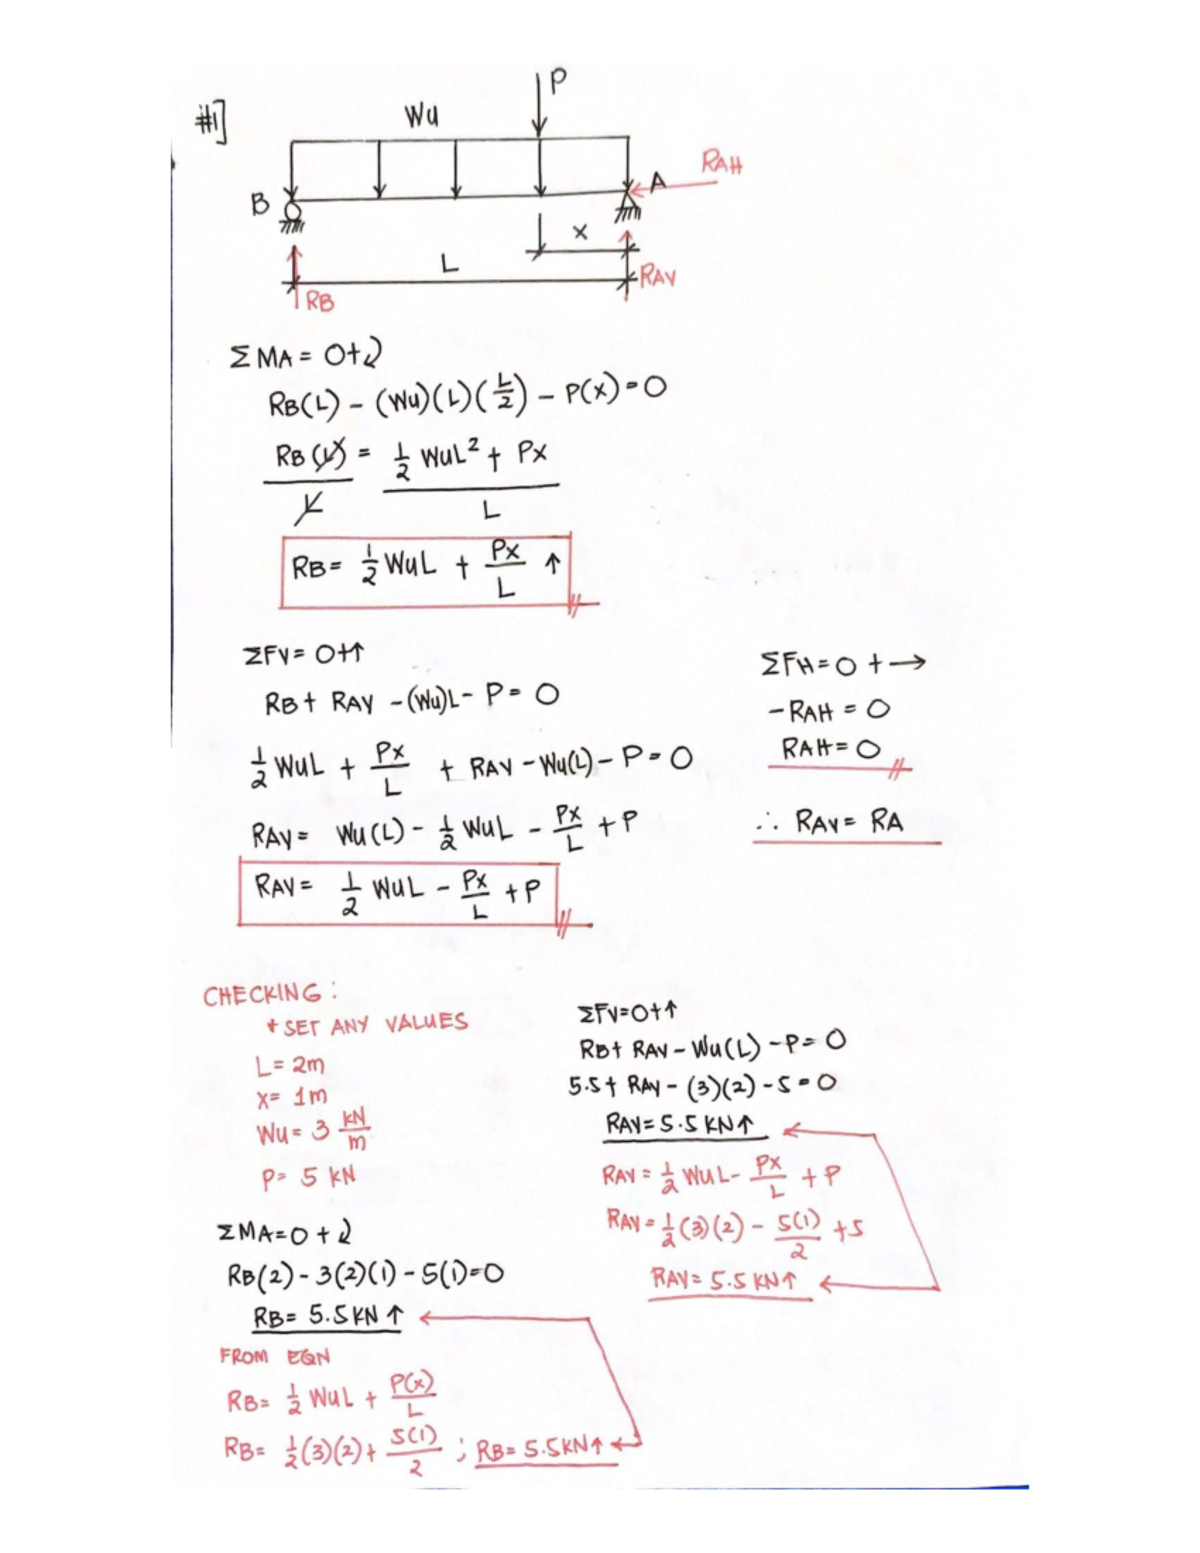 #1]
P
Wu
RAH
B
A
x
L
RAV
RB
ΣMA = 0+↻
RB(L) - (Wu)(L)(L/2) - P(x) = 0
RB(L)/L = (1/2 WuL² + Px)/L
RB = 1/2 WuL + Px/L ↑
ΣFV = 0+↑
RB + RAV - (Wu)L - P = 0
1/2 WuL + Px/L + RAV - Wu(L) - P = 0
RAV = Wu(L) - 1/2 WuL - Px/L + P
RAV = 1/2 WuL - Px/L + P
ΣFH = 0 + →
-RAH = 0
RAH = 0
∴ RAV = RA
CHECKING :
* SET ANY VALUES
L = 2m
x = 1m
Wu = 3 kN/m
P = 5 kN
ΣMA = 0 + ↻
RB(2) - 3(2)(1) - 5(1) = 0
RB = 5.5 KN ↑
FROM EQN
RB = 1/2 WuL + P(x)/L
RB = 1/2 (3)(2) + 5(1)/2 ; RB = 5.5KN↑
ΣFV = 0+↑
RB + RAV - Wu(L) - P = 0
5.5 + RAV - (3)(2) - 5 = 0
RAV = 5.5 KN↑
RAV = 1/2 WuL - Px/L + P
RAV = 1/2 (3)(2) - 5(1)/2 + 5
RAV = 5.5 KN↑